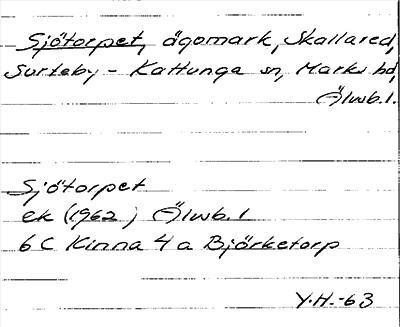 Sjötorpet, ägomark, Skallared,
Surteby-Kattunga sn, Marks hd,
Älvb.l.
Sjötorpet
ek (1962) Älvb.l
6C Kinna 4a Björketorp
Y.H.-63